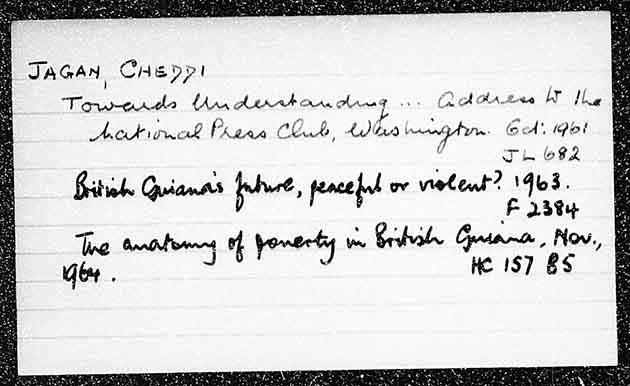 JAGAN, CHEDDI
Towards Understanding... Address to the
National Press Club, Washington. Oct: 1961
JL 682
British Guiana's future, peaceful or violent? 1963.
F 2384
The anatomy of poverty in British Guiana, Nov.,
1964.
HC 157 B5